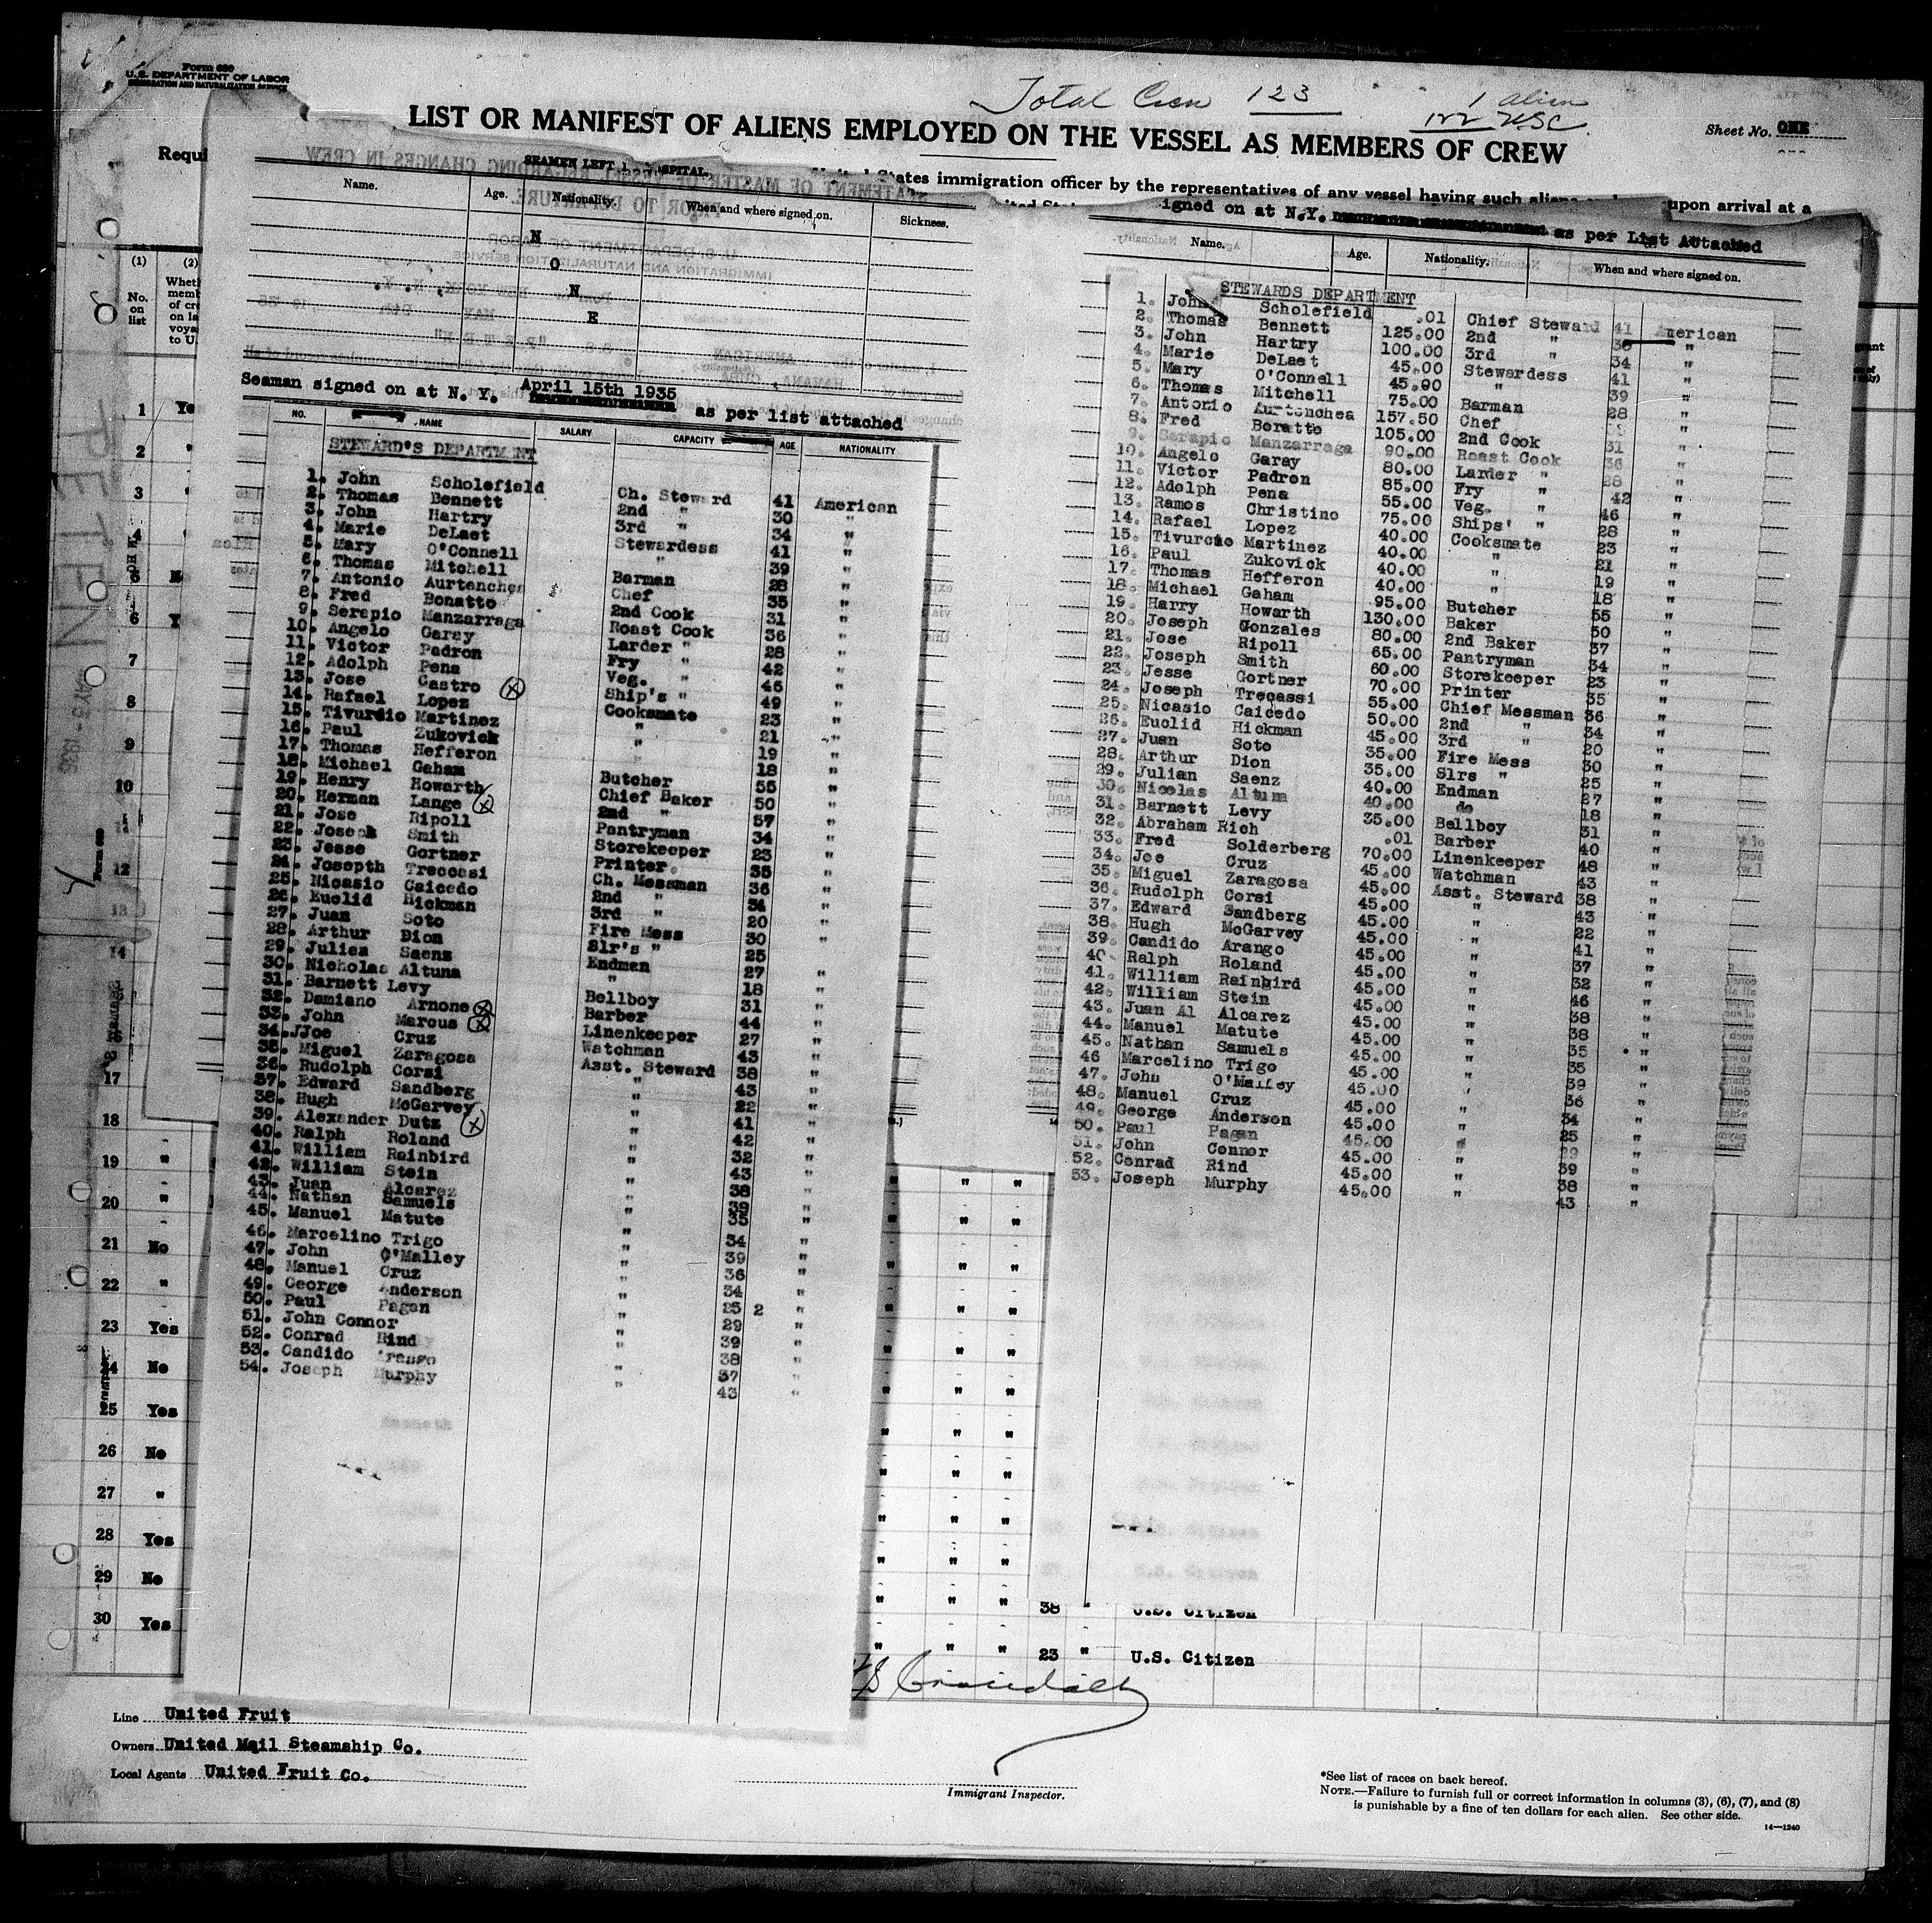 Form 680
U.S. DEPARTMENT OF LABOR
IMMIGRATION AND NATURALIZATION SERVICE
Total Crew 123
1 alien
122 USC.
Sheet No. ONE
LIST OR MANIFEST OF ALIENS EMPLOYED ON THE VESSEL AS MEMBERS OF CREW
Requi
United States immigration officer by the representatives of any vessel having such aliens
upon arrival at a
SEAMEN LEFT
HOSPITAL.
Name. Age. Nationality. When and where signed on. Sickness.
N
O
N
E
Seaman signed on at N. Y. April 15th 1935 as per list attached
NO. NAME SALARY CAPACITY AGE NATIONALITY
STEWARD'S DEPARTMENT
1. John Scholefield Ch. Steward 41 American
2. Thomas Bennett 2nd " 30 "
3. John Hartry 3rd " 34 "
4. Marie DeLaet Stewardess 41 "
5. Mary O'Connell " 39 "
6. Thomas Mitchell Barman 28 "
7. Antonio Aurtenchea Chef 35 "
8. Fred Bonatto 2nd Cook 31 "
9. Serapio Manzarraga Roast Cook 36 "
10. Angelo Garay Larder " 28 "
11. Victor Padron Fry " 42 "
12. Adolph Pena Veg. " 46 "
13. Jose Castro Ship's " 49 "
14. Rafael Lopez Cooksmate 23 "
15. Tivurcio Martinez " 21 "
16. Paul Zukovick " 19 "
17. Thomas Hefferon " 18 "
18. Michael Gaham Butcher 55 "
19. Henry Howarth Chief Baker 50 "
20. Herman Lange 2nd " 57 "
21. Jose Ripoll Pantryman 34 "
22. Joseph Smith Storekeeper 23 "
23. Jesse Gortner Printer. 35 "
24. Josepth Treccasi Ch. Messman 36 "
25. Nicasio Caicedo 2nd " 34 "
26. Euclid Hickman 3rd " 20 "
27. Juan Soto Fire Mess 30 "
28. Arthur Dion Slr's " 25
29. Julian Saenz Endman 27 "
30. Nicholas Altuna " 18 "
31. Barnett Levy Bellboy 31 "
32. Damiano Arnone Barber 44 "
33. John Marcus Linenkeeper 27 "
34. JJoe Cruz Watchman 43 "
35. Miguel Zaragosa Asst. Steward 38 "
36. Rudolph Corsi " 43 "
37. Edward Sandberg " 22 "
38. Hugh McGarvey " 41 "
39. Alexander Dutz " 42 "
40. Ralph Roland " 32 "
41. William Rainbird " 43 "
42. William Stein " 38 "
43. Juan Alcarez " 39 "
44. Nathan Samuels " 35 "
45. Manuel Matute
46. Marcelino Trigo " 34 "
47. John O'Malley " 39 "
48. Manuel Cruz " 36 "
49. George Anderson " 34 "
50. Paul Pagan " 25 2 "
51. John Connor " 29 "
52. Conrad Rind " 39 "
53. Candido Arango " 38 "
54. Joseph Murphy " 37 "
43 "
signed on at N.Y. as per List Attached
Name. Age. Nationality. When and where signed on.
STEWARDS DEPARTMENT
1. John Scholefield .01 Chief Steward 41 American
2. Thomas Bennett 125.00 2nd " 30 "
3. John Hartry 100.00 3rd " 34 "
4. Marie DeLaet 45.00 Stewardess 41 "
5. Mary O'Connell 45.00 " 39 "
6. Thomas Mitchell 75.00 Barman 28 "
7. Antonio Aurtenchea 157.50 Chef "
8. Fred Boratto 105.00 2nd Cook 31 "
9. Serapio Manzarraga 90.00 Roast Cook 36 "
10. Angelo Garay 80.00 Larder " 28 "
11. Victor Padron 85.00 Fry " 42 "
12. Adolph Pena 55.00 Veg. " 46 "
13. Ramos Christino 75.00 Ships' " 28 "
14. Rafael Lopez 40.00 Cooksmate 23 "
15. Tivurcio Martinez 40.00 " 21 "
16. Paul Zukovick 40.00 " 19 "
17. Thomas Hefferon 40.00 " 18 "
18. Michael Gaham 95.00 Butcher 55 "
19. Harry Howarth 130.00 Baker 50 "
20. Joseph Gonzales 80.00 2nd Baker 37 "
21. Jose Ripoll 65.00 Pantryman 34 "
22. Joseph Smith 60.00 Storekeeper 23 "
23. Jesse Gortner 70.00 Printer 35 "
24. Joseph Trecassi 55.00 Chief Messman 36 "
25. Nicasio Caicedo 50.00 2nd " 34 "
26. Euclid Hickman 45.00 3rd " 20 "
27. Juan Soto 35.00 Fire Mess 30 "
28. Arthur Dion 35.00 Slrs " 25 "
29. Julian Saenz 40.00 Endman 27 "
30. Nicolas Altuna 40.00 do 18 "
31. Barnett Levy 35.00 Bellboy 31 "
32. Abraham Rich .01 Barber 40 "
33. Fred Solderberg 70.00 Linenkeeper 48 "
34. Joe Cruz 45.00 Watchman 43 "
35. Miguel Zaragosa 45.00 Asst. Steward 38 "
36. Rudolph Corsi 45.00 " 43 "
37. Edward Sandberg 45.00 " 22 "
38. Hugh McGarvey 45.00 " 41 "
39. Candido Arango 45.00 " 37 "
40 Ralph Roland 45.00 " 32 "
41. William Rainbird 45.00 " 46 "
42. William Stein 45.00 " 38 "
43. Juan Al Alcarez 45.00 " 38 "
44. Manuel Matute 45.00 " 35 "
45. Nathan Samuels 45.00 " 35 "
46 Marcelino Trigo 45.00 " 39 "
47. John O'Malley 45.00 " 36 "
48. Manuel Cruz 45.00 " 34 "
49. George Anderson 45.00 " 25 "
50. Paul Pagan 45.00 " 29 "
51. John Connor 45.00 " 39 "
52. Conrad Rind 45.00 " 38 "
53. Joseph Murphy 45.00 " 43 "
(1) (2)
No. on list
Whet
memb
of cre
on la
voya
to U.
1 Ye
2 "
3 "
4
5 N
6 Y
7
8
9
10
12
13
14
17
18
19 "
20 "
21 No
22 "
23 Yes
24 No
25 Yes
26 No
27 "
28 Yes
29 No
30 Yes
PETEN
MAY 5 - 1935
38 " U.S. Citizen
" " " 23 " U.S. Citizen
Line United Fruit
Owners United Mail Steamship Co.
Local Agents United Fruit Co.
Immigrant Inspector.
*See list of races on back hereof.
NOTE.—Failure to furnish full or correct information in columns (3), (6), (7), and (8)
is punishable by a fine of ten dollars for each alien. See other side.
14—1240